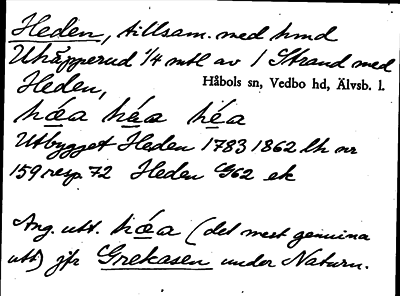 Heden, tillsam. med hmd
Uhäpperud 1/4 mtl av 1 Strand med
Heden,
Håbols sn, Vedbo hd, Älvsb. l.
hœa héa héa
Utbygget Heden 1783 1862 lh nr
159 resp. 72 Heden G62 ek
Ang. utt. hœa (det mest genuina
utt) jfr Grekasen under Naturn.